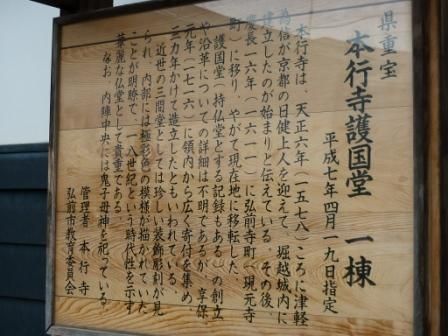 県重宝
本行寺護国堂 一棟
平成七年四月一九日指定
本行寺は、天正六年(一五七八)ころに津軽
為信が京都の日健上人を迎えて、堀越城内に
建立したのが始まりと伝えている。その後、
慶長一六年(一六一一)に弘前寺町(現元寺
町)に移り、やがて現在地に移転した。
護国堂(持仏堂とする記録もある)の創立
や沿革についての詳細は不明であるが、享保
元年(一七一六)に領内から広く寄付を集め、
三カ年かけて造立したともいわれている。
近世の三間堂としては珍しい装飾彫刻が見
られ、内部には極彩色の模様が描かれていた
ことが明瞭で、一八世紀という時代性を示す
華麗な仏堂として貴重である。
なお、内陣中央には鬼子母神を祀っている。
管理者 本行寺
弘前市教育委員会